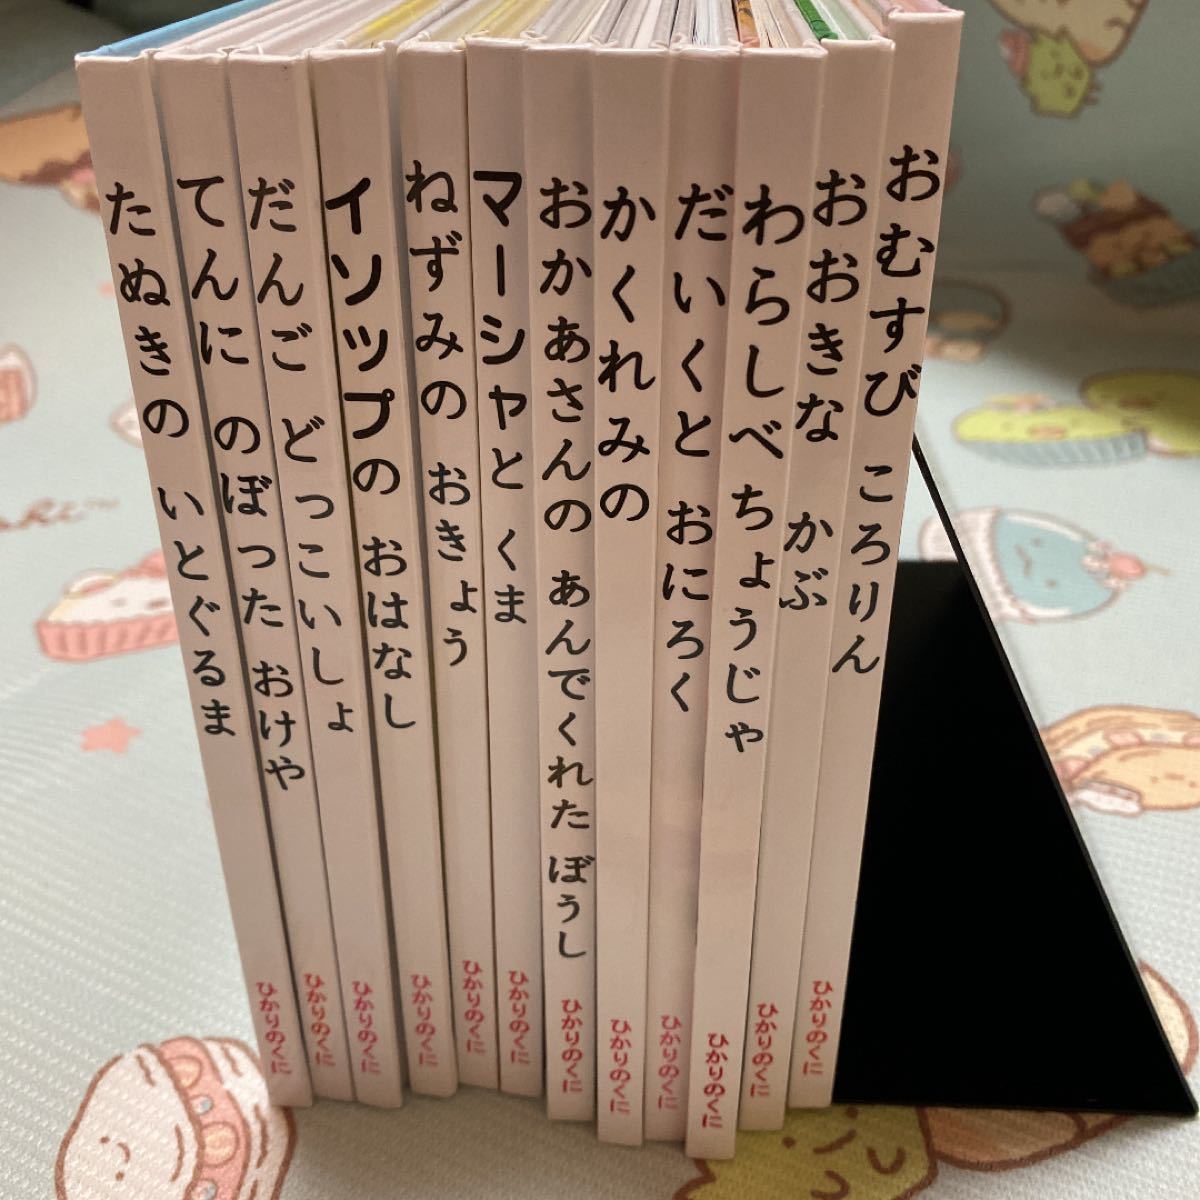 たぬきの いとぐるま
ひかりのくに
てんに のぼった おけや
ひかりのくに
だんご どっこいしょ
ひかりのくに
イソップの おはなし
ひかりのくに
ねずみの おきょう
ひかりのくに
マーシャと くま
ひかりのくに
おかあさんの あんでくれた ぼうし
ひかりのくに
かくれみの
ひかりのくに
だいくと おにろく
ひかりのくに
わらしべ ちょうじゃ
ひかりのくに
おおきな かぶ
ひかりのくに
おむすび ころりん
ひかりのくに